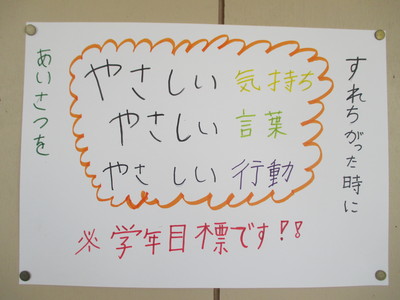 すれちがった時に
あいさつを
やさしい 気持ち
やさしい 言葉
やさしい 行動
※学年目標です!!